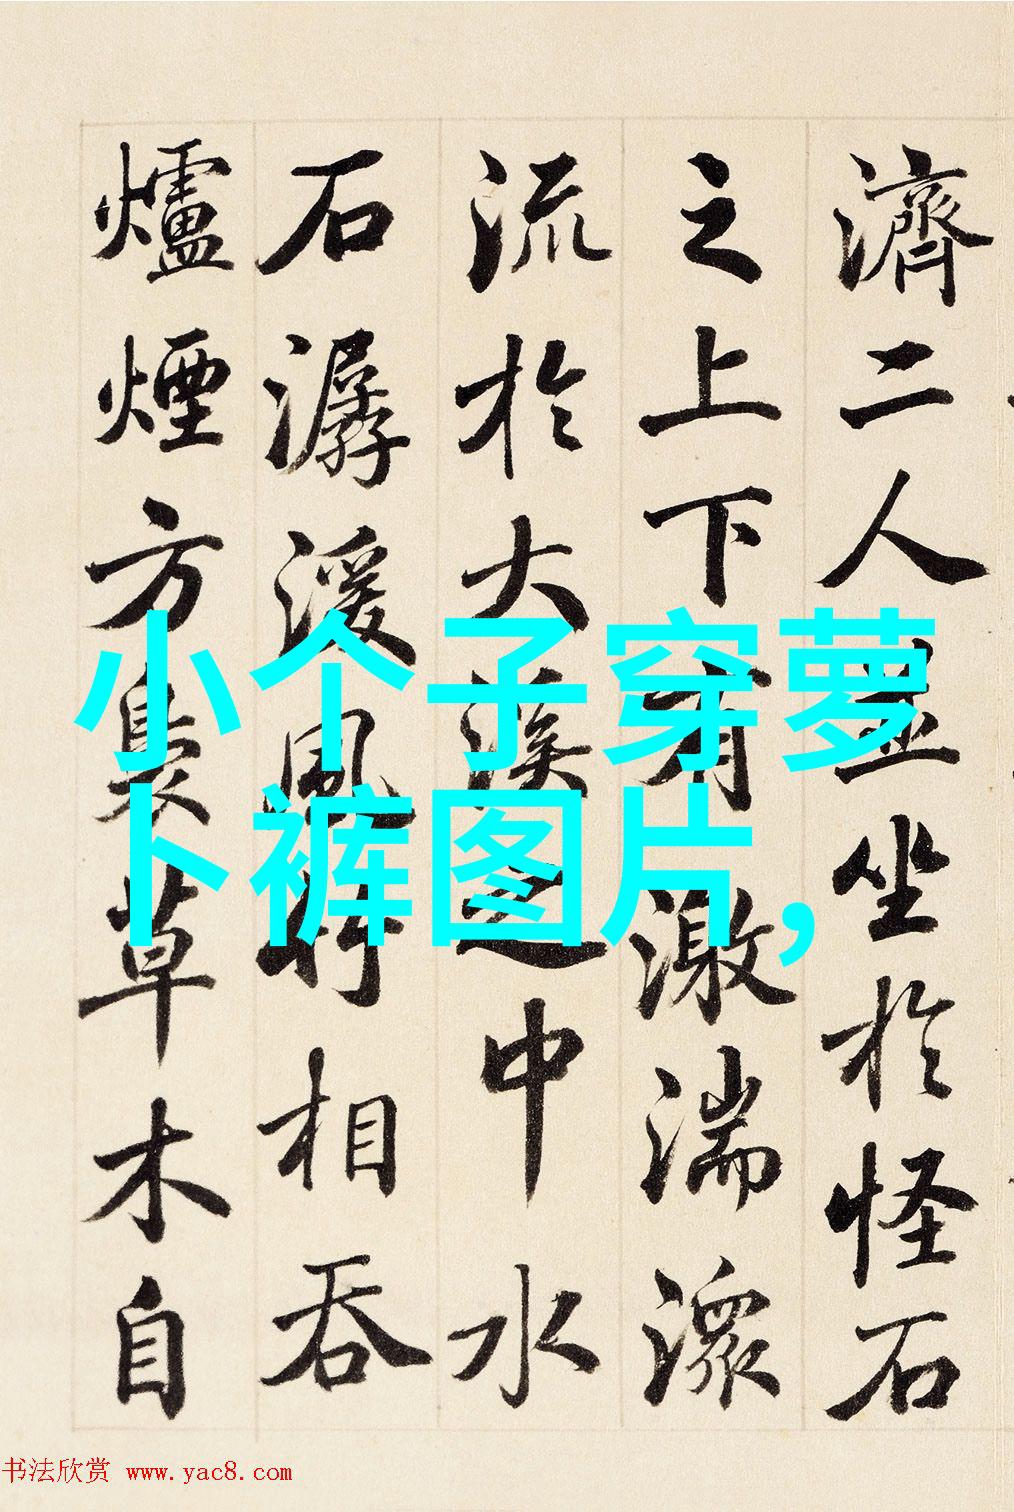 濟二人並坐於怪石
之上下有激湍潨
流於大溪之中水
石潺湲風竹相吞
爐煙方裊草木自
小个子穿萝
卜裤图片,
书法欣赏 www.yac8.com